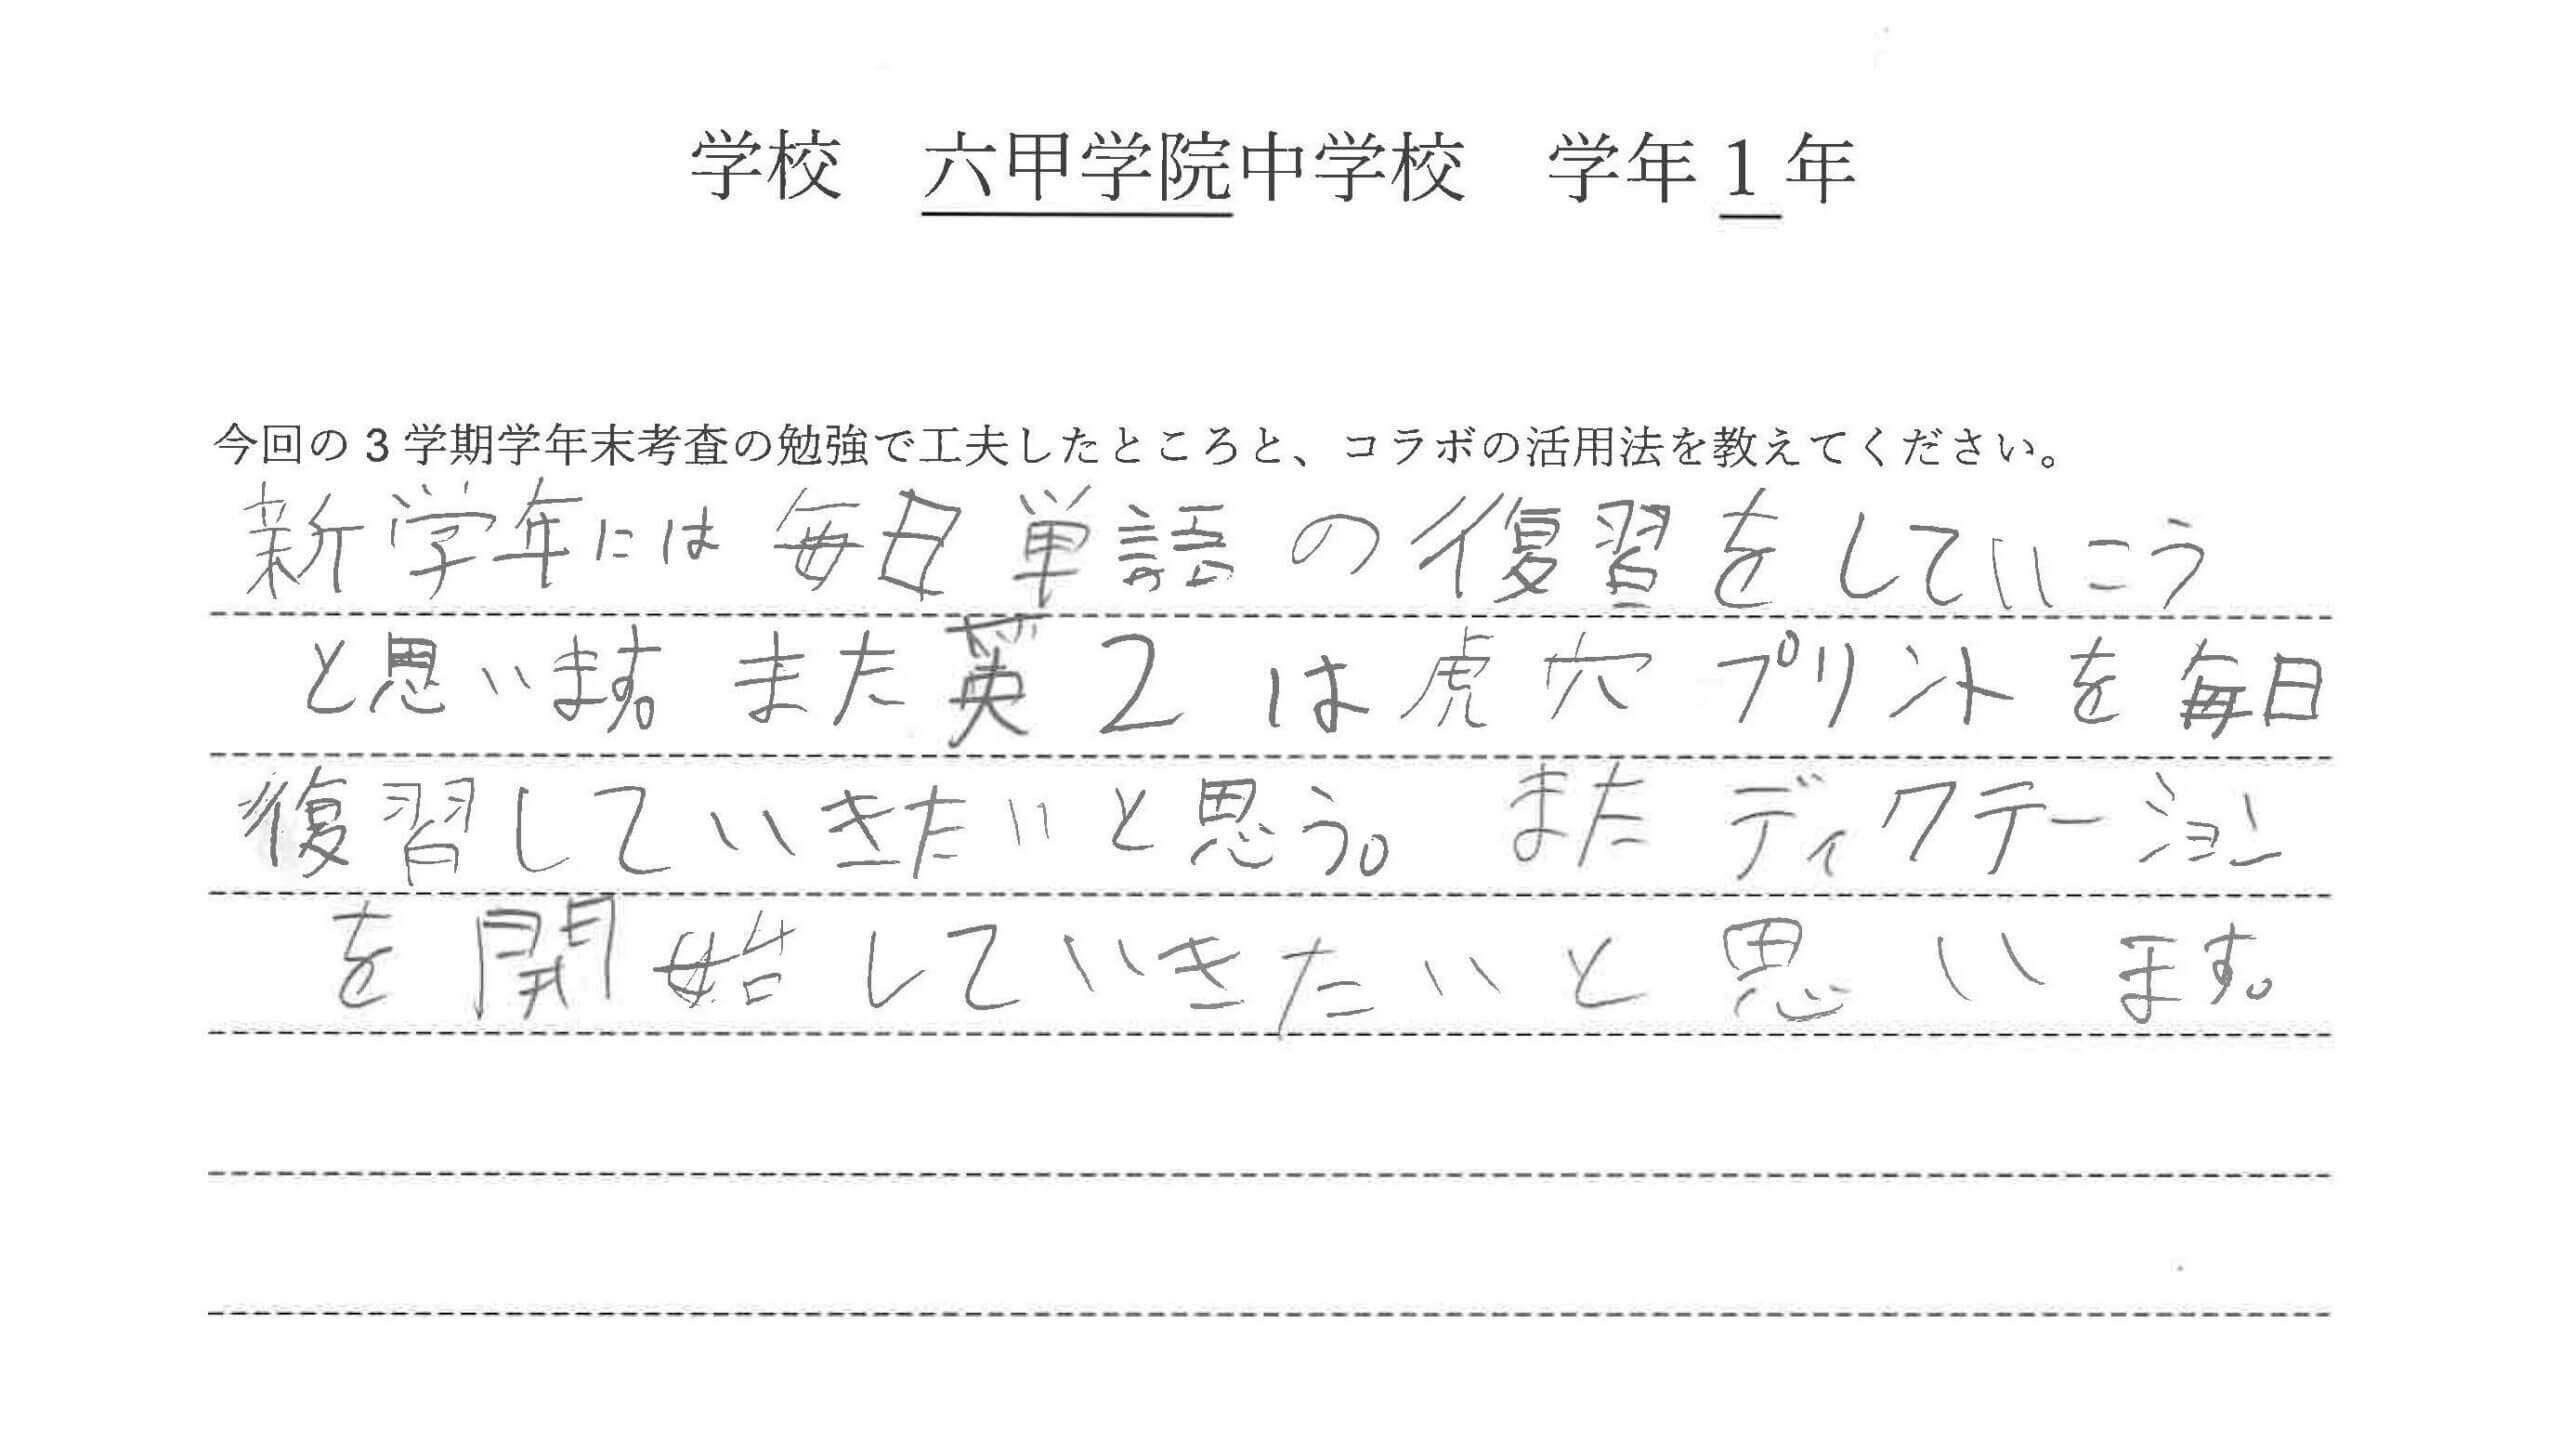 学校　六甲学院中学校　学年 1 年
今回の 3 学期学年末考査の勉強で工夫したところと、コラボの活用法を教えてください。
新学年には毎日単語の復習をしていこう
と思います。また英2は虎穴プリントを毎日
復習していきたいと思う。またディクテーション
を開始していきたいと思います。